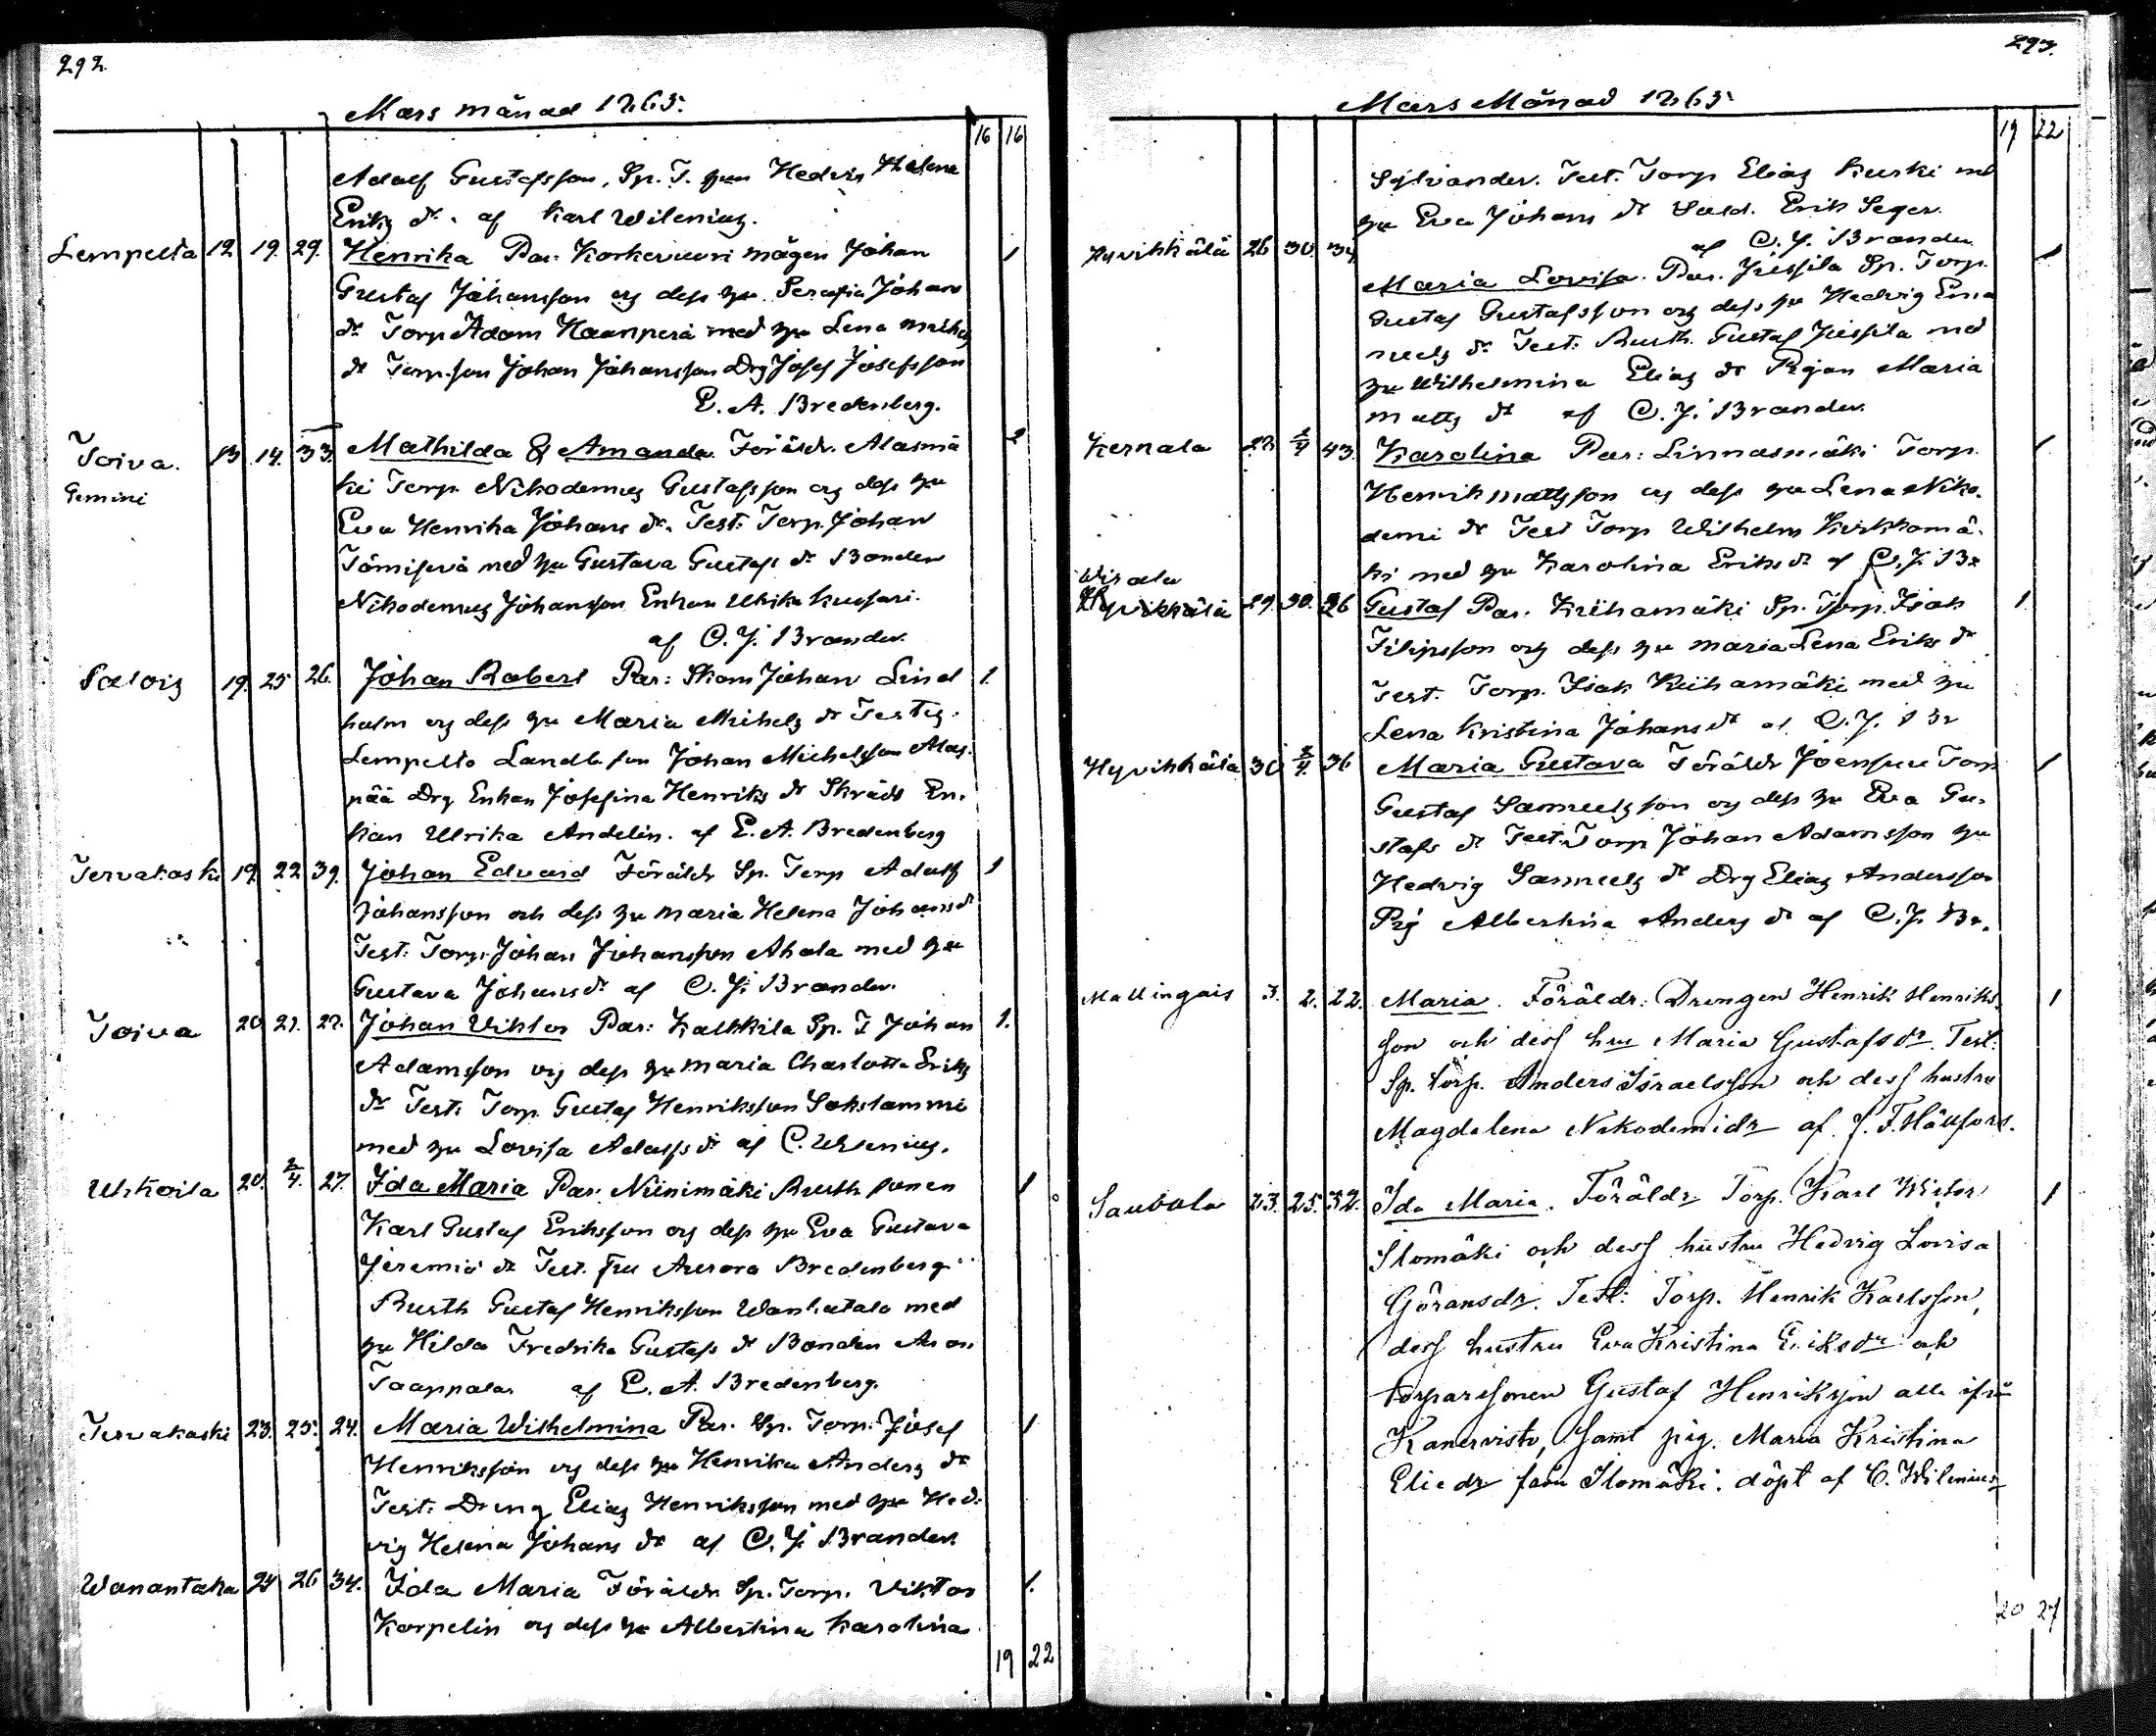 292.
Mars månad 1865.
16 16
Adolf Gustafsson, Sp. T. hu Hedvig Helena
Eriks dr. af Karl Wilenius.
Lempelto 12 19. 29. Henrika Par. Korkeevuori mågen Johan 1
Gustaf Johansson og dess hu Serafia Johans
dr Torp Adam Haanperä med hu Lena Mihels
dr Torp. son Johan Johansson Drg Josef Josefsson
E. A. Bredenberg.
Toiva. 13. 14. 33. Mathilda & Amanda. Föräldr. Alasmä 2
Gemini
ki Torp. Nikodemus Gustafsson og dess hu
Eva Henrika Johans dr. Test: Torp. Johan
med hu Gustava Gustafs dr Bonden
Nikodemus Johansson Enkan Ulrika
af C. J. Brander.
Salois 19. 25 26. Johan Robert Par: Johan Lind 1.
holm og dess hu Maria Mihels dr Testes.
Lempelto Landb. son Johan Michelsson Alas.
pää Drg Enkan Josefina Henriks dr Skrädd En.
kan Ulrika Andelin. af E. A. Bredenberg
Tervakoski 19. 22 39. Johan Edvard Föräldr Sp. Torp Adolf 1
Johansson och dess hu Maria Helena Johansd
Test: Torp. Johan Johansson Ahola med hu
Gustava Johansdr. af C. J. Brander.
Toiva 20 21. 27. Johan Viktor Par: Kalkkila Sp. T Johan 1.
Adamsson og dess hu Maria Charlotta Eriks
dr Test: Torp. Gustaf Henriksson Sokslammi
med hu Lovisa Adolfs dr af C. Wlenius.
Uhkoila 20. 2/4. 27. Ida Maria Par. Niinimäki Rusth sonen 1
Karl Gustaf Eriksson og dess hu Eva Gustava
Jeremiæ dr Test. fru Aurora Bredenberg
Rusth Gustaf Henriksson Wanhatalo med
hu Hilda Fredrika Gustafs dr Bonden Aron
Taappala. af E. A. Bredenberg.
Tervakoski 23. 25. 24. Maria Wilhelmina Par. Sp. Torp. Josef 1
Henriksson og dess hu Henrika Anders dr
Test: Dreng Elias Henriksson med hu Hed.
vig Helena Johans dr af C. J. Brander.
Wanantaka 24 26 34. Ida Maria Föräldr Sp. Torp. Viktor 1.
Korpelin og dess hu Albertina Karolina
19 22
293.
Mars Månad 1865
19 22
Sylvander. Test. Torp Elias Kurki md
hu Eva Johans dr Sold. Erik Seger.
af C. J. Brander
Hyvikkälä 26 30. 34 Maria Lovisa. Par. Jussila Sp. Torp. 1
Gustaf Gustafsson og dess hu Hedvig Ema
nuels dr Test: Rusth. Gustaf Jussila md
hu Wilhelmina Elias dr Pigan Maria
Matts dr af C. J. Brander.
Kernala 28. 2/4 43. Karolina Par: Linnasmäki Torp. 1
Henrik Mattsson og dess hu Lena Niko.
demi dr Test Torp Wilhelm Kirkkomä.
ki med hu Karolina Eriks dr af C. J. Br
Wirala
Hyvikkälä 29. 30. 26 Gustaf Par. Kriihamäki Sp. Torp. Isak 1
Filipsson og dess hu Maria Lena Eriks dr
Test. Torp. Isak Riihamäki med hu
Lena Kristina Johans dr af C. J. Br
Hyvikkälä 30 2/4. 36 Maria Gustava Föräldr Joensuu Torp 1
Gustaf Samuelsson og dess hu Eva Gu.
stafs dr Test: Torp Johan Adamsson hu
Hedvig Samuels dr Drg Elias Andersson
Pig Albertina Anders dr af C. J. Br.
Mallingais 3. 2. 22. Maria. Föräldr: Drengen Henrik Henriks 1
son och dess hu Maria Gustafsdr. Test:
Sp. torp. Anders Israelsson och dess hustru
Magdalena Nikodemidr af J. F. Hällfors.
Saubola 23. 25. 32. Ida Maria. Föräldr Torp. Karl Wictor 1
Ilomäki och dess hustru Hedvig Lovisa
Göransdr. Test: Torp. Henrik Karlsson,
dess hustru Eva Kristina Eriksdr och
torparesonen Gustaf Henriksson alla ifrån
Kanervisto, samt pig. Maria Kristina
Eliedr från Ilomäki. döpt af C. Wilenius
20 27